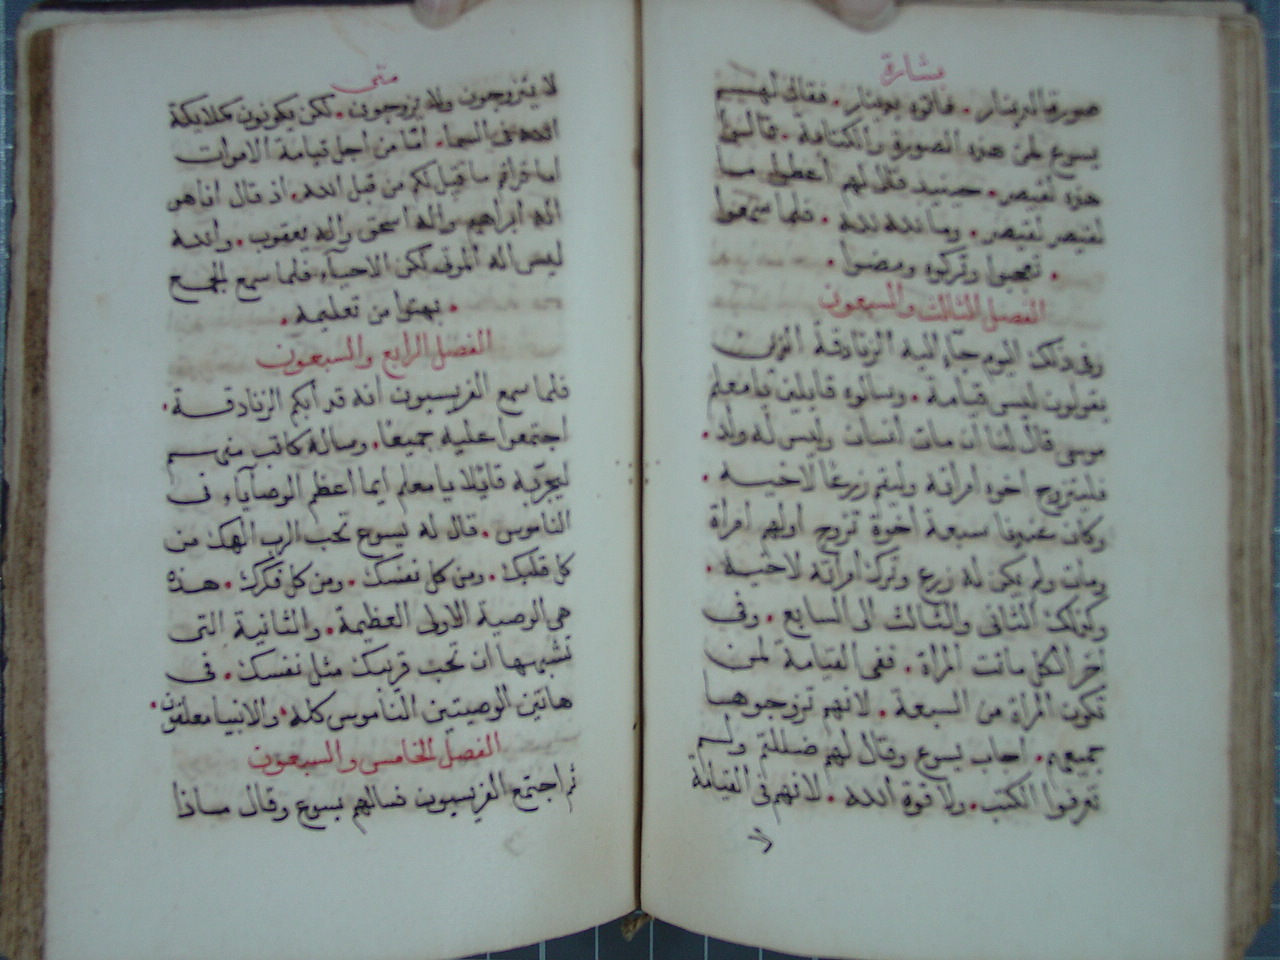 بشارة
صورة الدينار . فاتوه بدينار . فقال لهم
يسوع لمن هذه الصورة والكتابة . قالوا
هذه لقيصر . حينيد قال لهم أعطوا ما
لقيصر لقيصر . وما لله لله . فلما سمعوا
. تعجبوا وتركوه ومضوا .
الفصل الثالث والسبعون
وفى ذلك اليوم جاء اليه الزنادقة الذين
يقولون ليس قيامة . وسالوه قايلين يا معلم
موسى قال لنا ان مات أنسان وليس له ولد .
فليتزوج اخوه امراته وليقم زرعًا لاخيه .
وكان عندنا سبعة أخوة تزوج اولهم امراة
ومات ولم يكن له زرع وترك أمراته لاخيه .
وكذلك الثانى والثالث الى السابع . وفى
أخر الكل ماتت المراة . ففى القيامة لمن
تكون المراة من السبعة . لانهم تزوجوها
جميعهم . اجاب يسوع وقال لهم ضللتم ولم
تعرفوا الكتب . ولا قوة الله . لانهم فى القيامة
متى
لا يتزوجون ولا يزوجون . لكن يكونون كملايكة
الله فى السما . امّا من اجل قيامة الاموات
اما قراتم ما قيل لكم من قبل الله . اذ قال انا هو
اله ابراهيم واله اسحق واله يعقوب . والله
ليس اله الموتى لكن الاحياء فلما سمع الجمع
. بهتوا من تعليمه .
الفصل الرابع والسبعون
فلما سمع الفريسيون أنه قد أبكم الزنادقة .
اجتمعوا عليه جميعًا . وساله كاتب منهم
ليجرّبه قائلا يا معلم ايما اعظم الوصاياء فى
الناموس . قال له يسوع تحب الرب الهك من
كل قلبك . ومن كل نفسك . ومن كل فكرك . هذه
هى الوصية الاولى العظيمة . والثانية التى
تشبهها ان تحب قريبك مثل نفسك . فى
هاتين الوصيتين الناموس كله . والانبيا معلقون .
الفصل الخامس والسبعون
ثم اجتمع الفريسيون فسالهم يسوع وقال ماذا